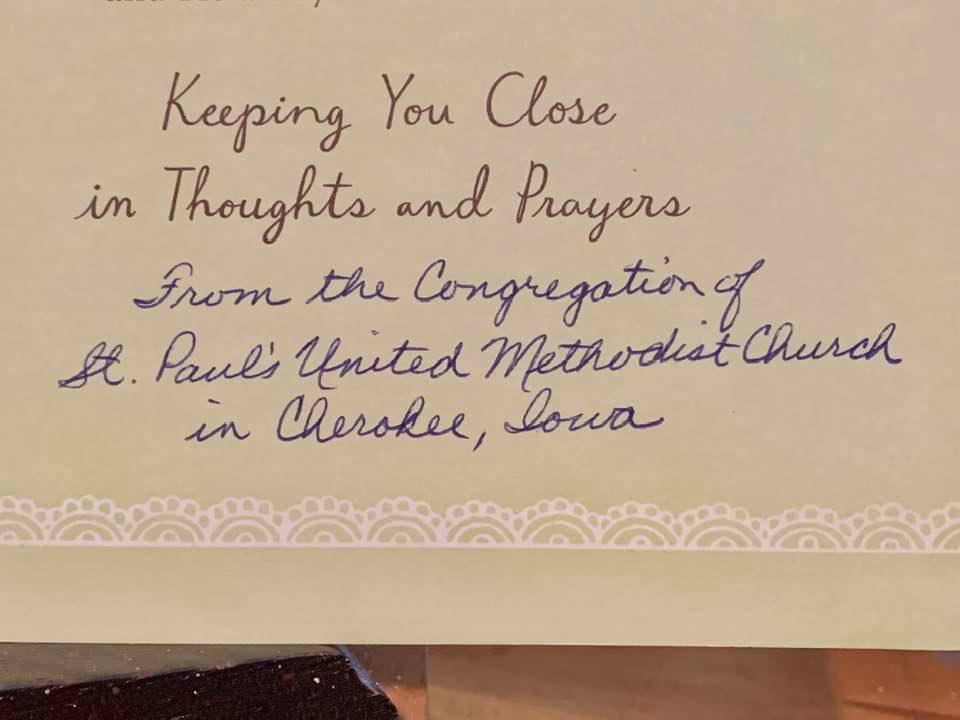 Keeping You Close
in Thoughts and Prayers
From the Congregation of
St. Paul's United Methodist Church
in Cherokee, Iowa